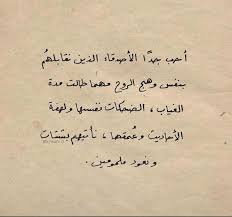 أحب جدًا الأصدقاء الذين نقابلهُم
بنفس وهج الروح مهما طالت مدة
الغياب ، الضحكات نفسها ولهفة
الأحاديث وعُمقها ، نأتيهم بشتات
ونعود ملمومين .